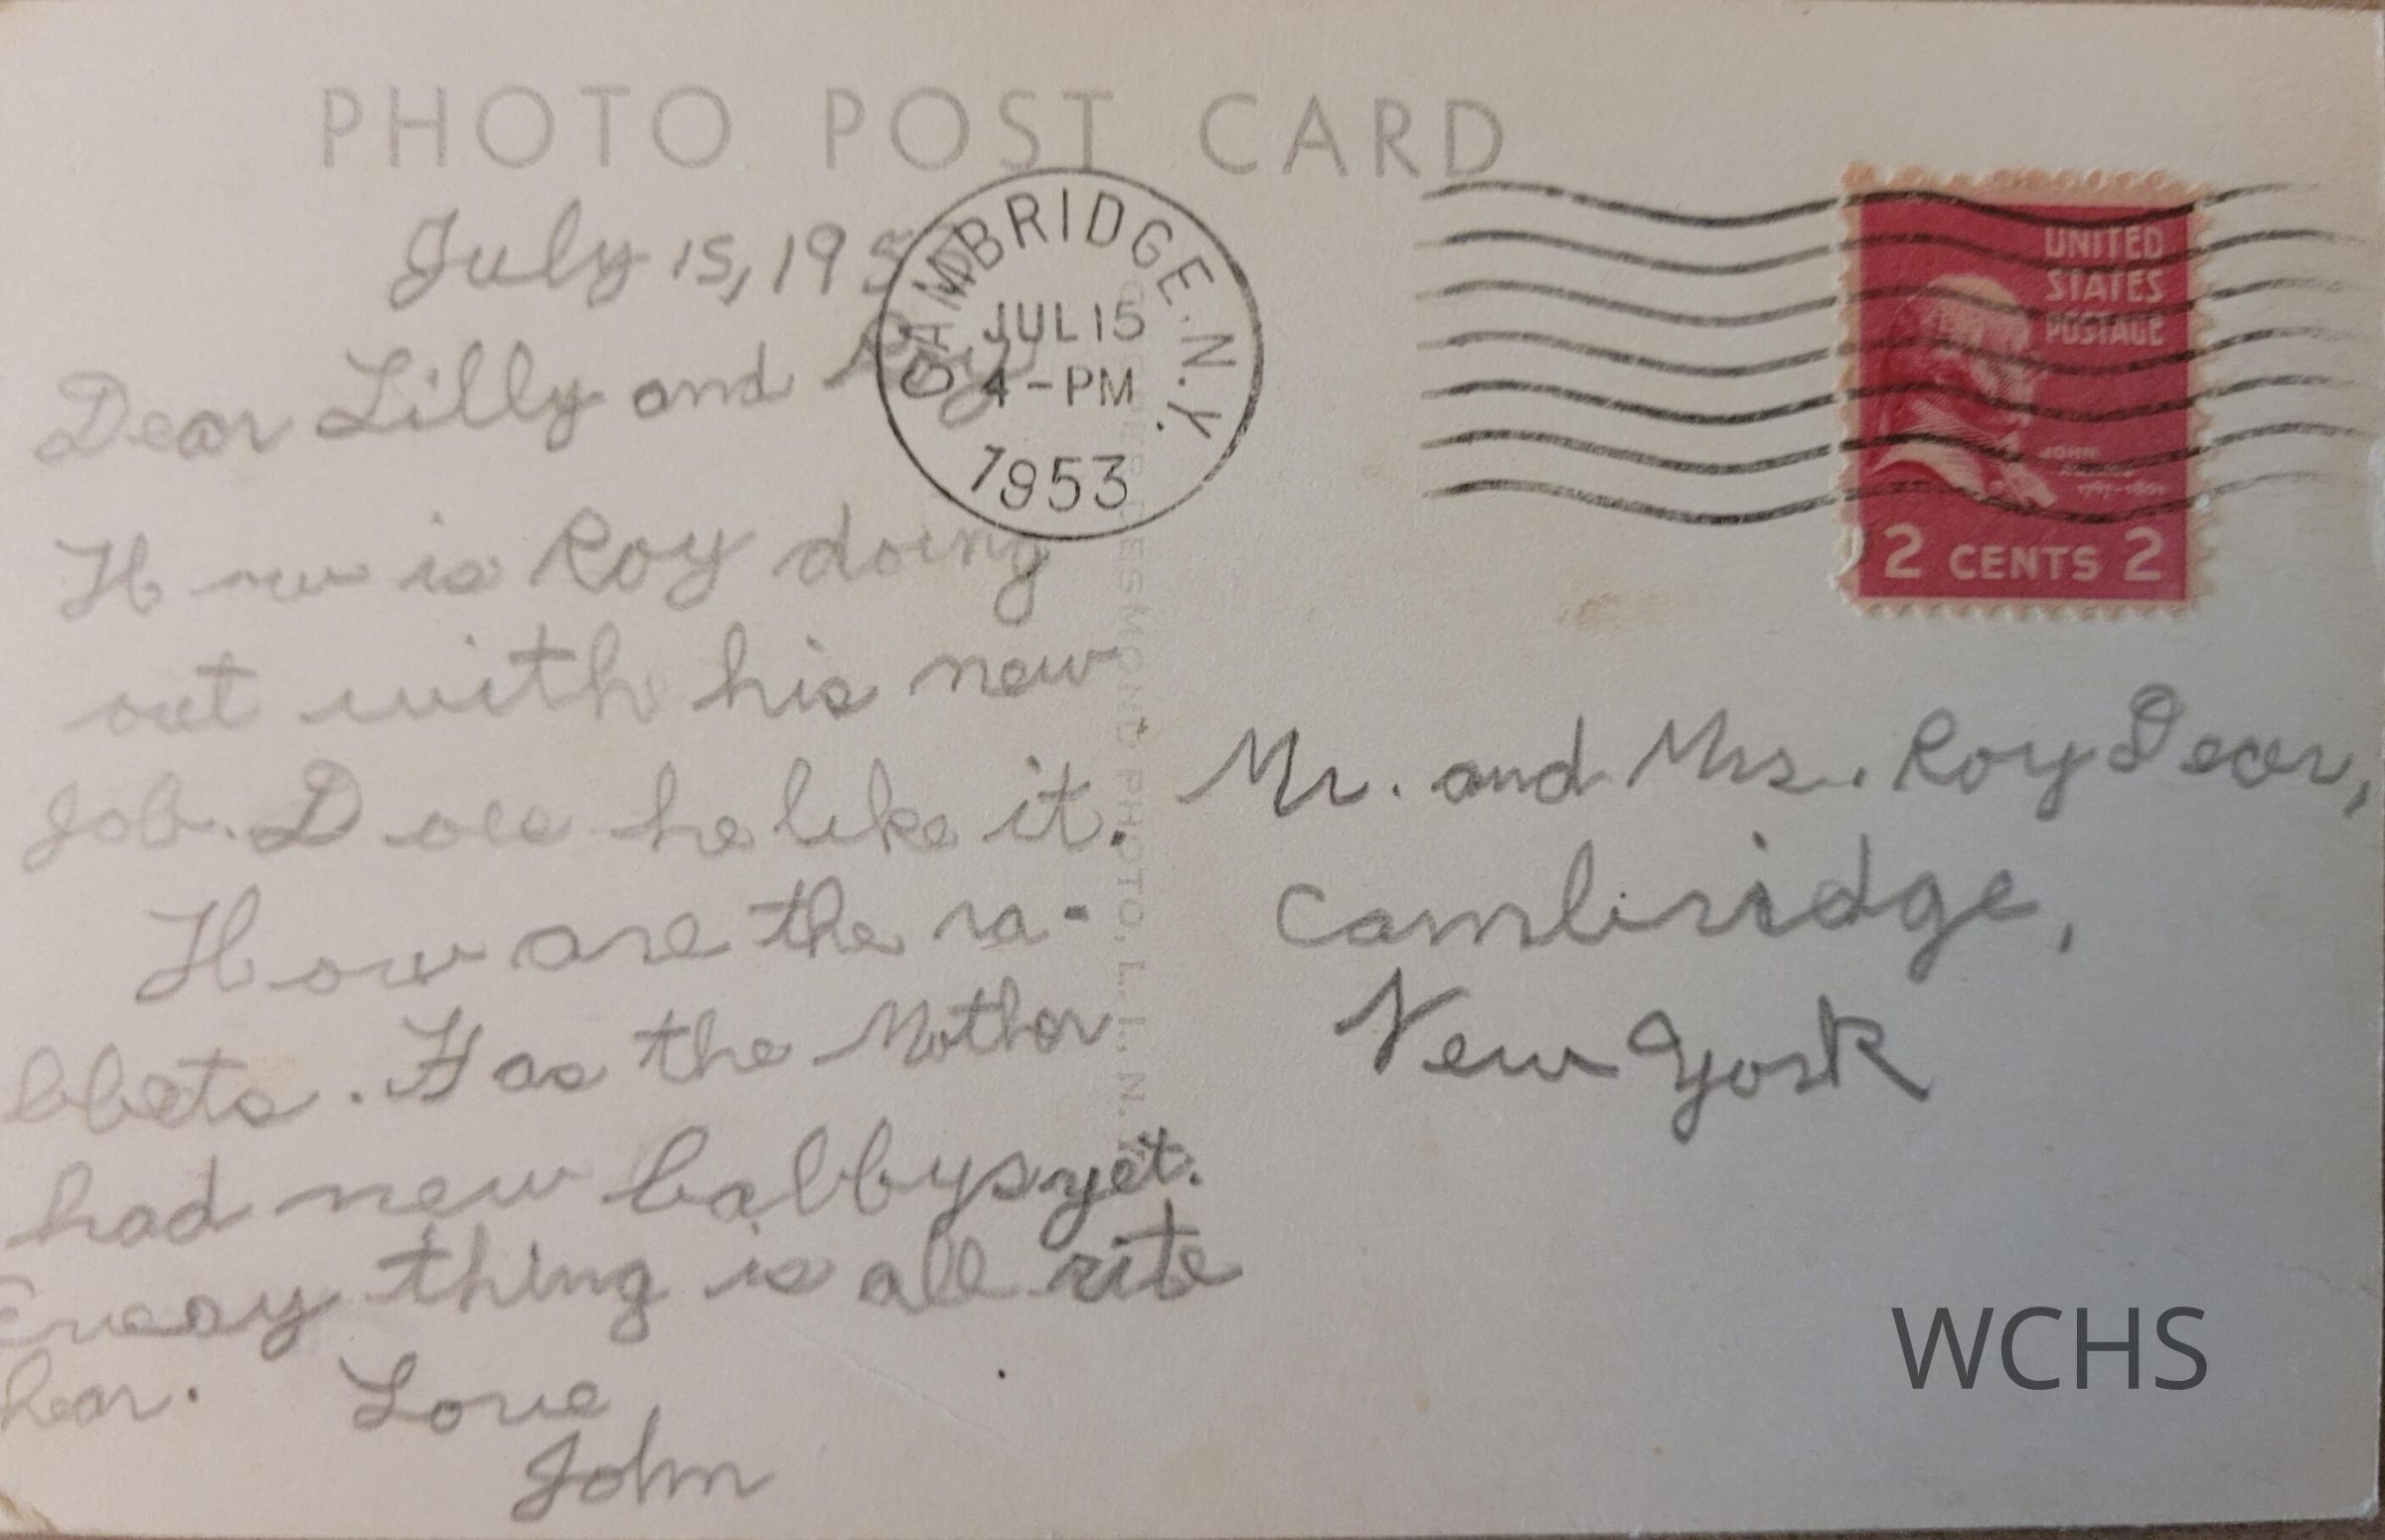 PHOTO POST CARD
July 15, 195
Dear Lilly and Roy
How is Roy doing
out with his new
Job. Does he like it.
How are the ra-
bbets. Has the Mother
had new babbys yet.
Every thing is all rite
hear. Love,
John
CAMBRIDGE. N.Y.
JUL 15
4-PM
1953
UNITED
STATES
POSTAGE
JOHN
ADAMS
1797-1801
2 CENTS 2
Mr. and Mrs. Roy Dear,
Cambridge,
New York
DESMOND PHOTO, L. I., N.
WCHS